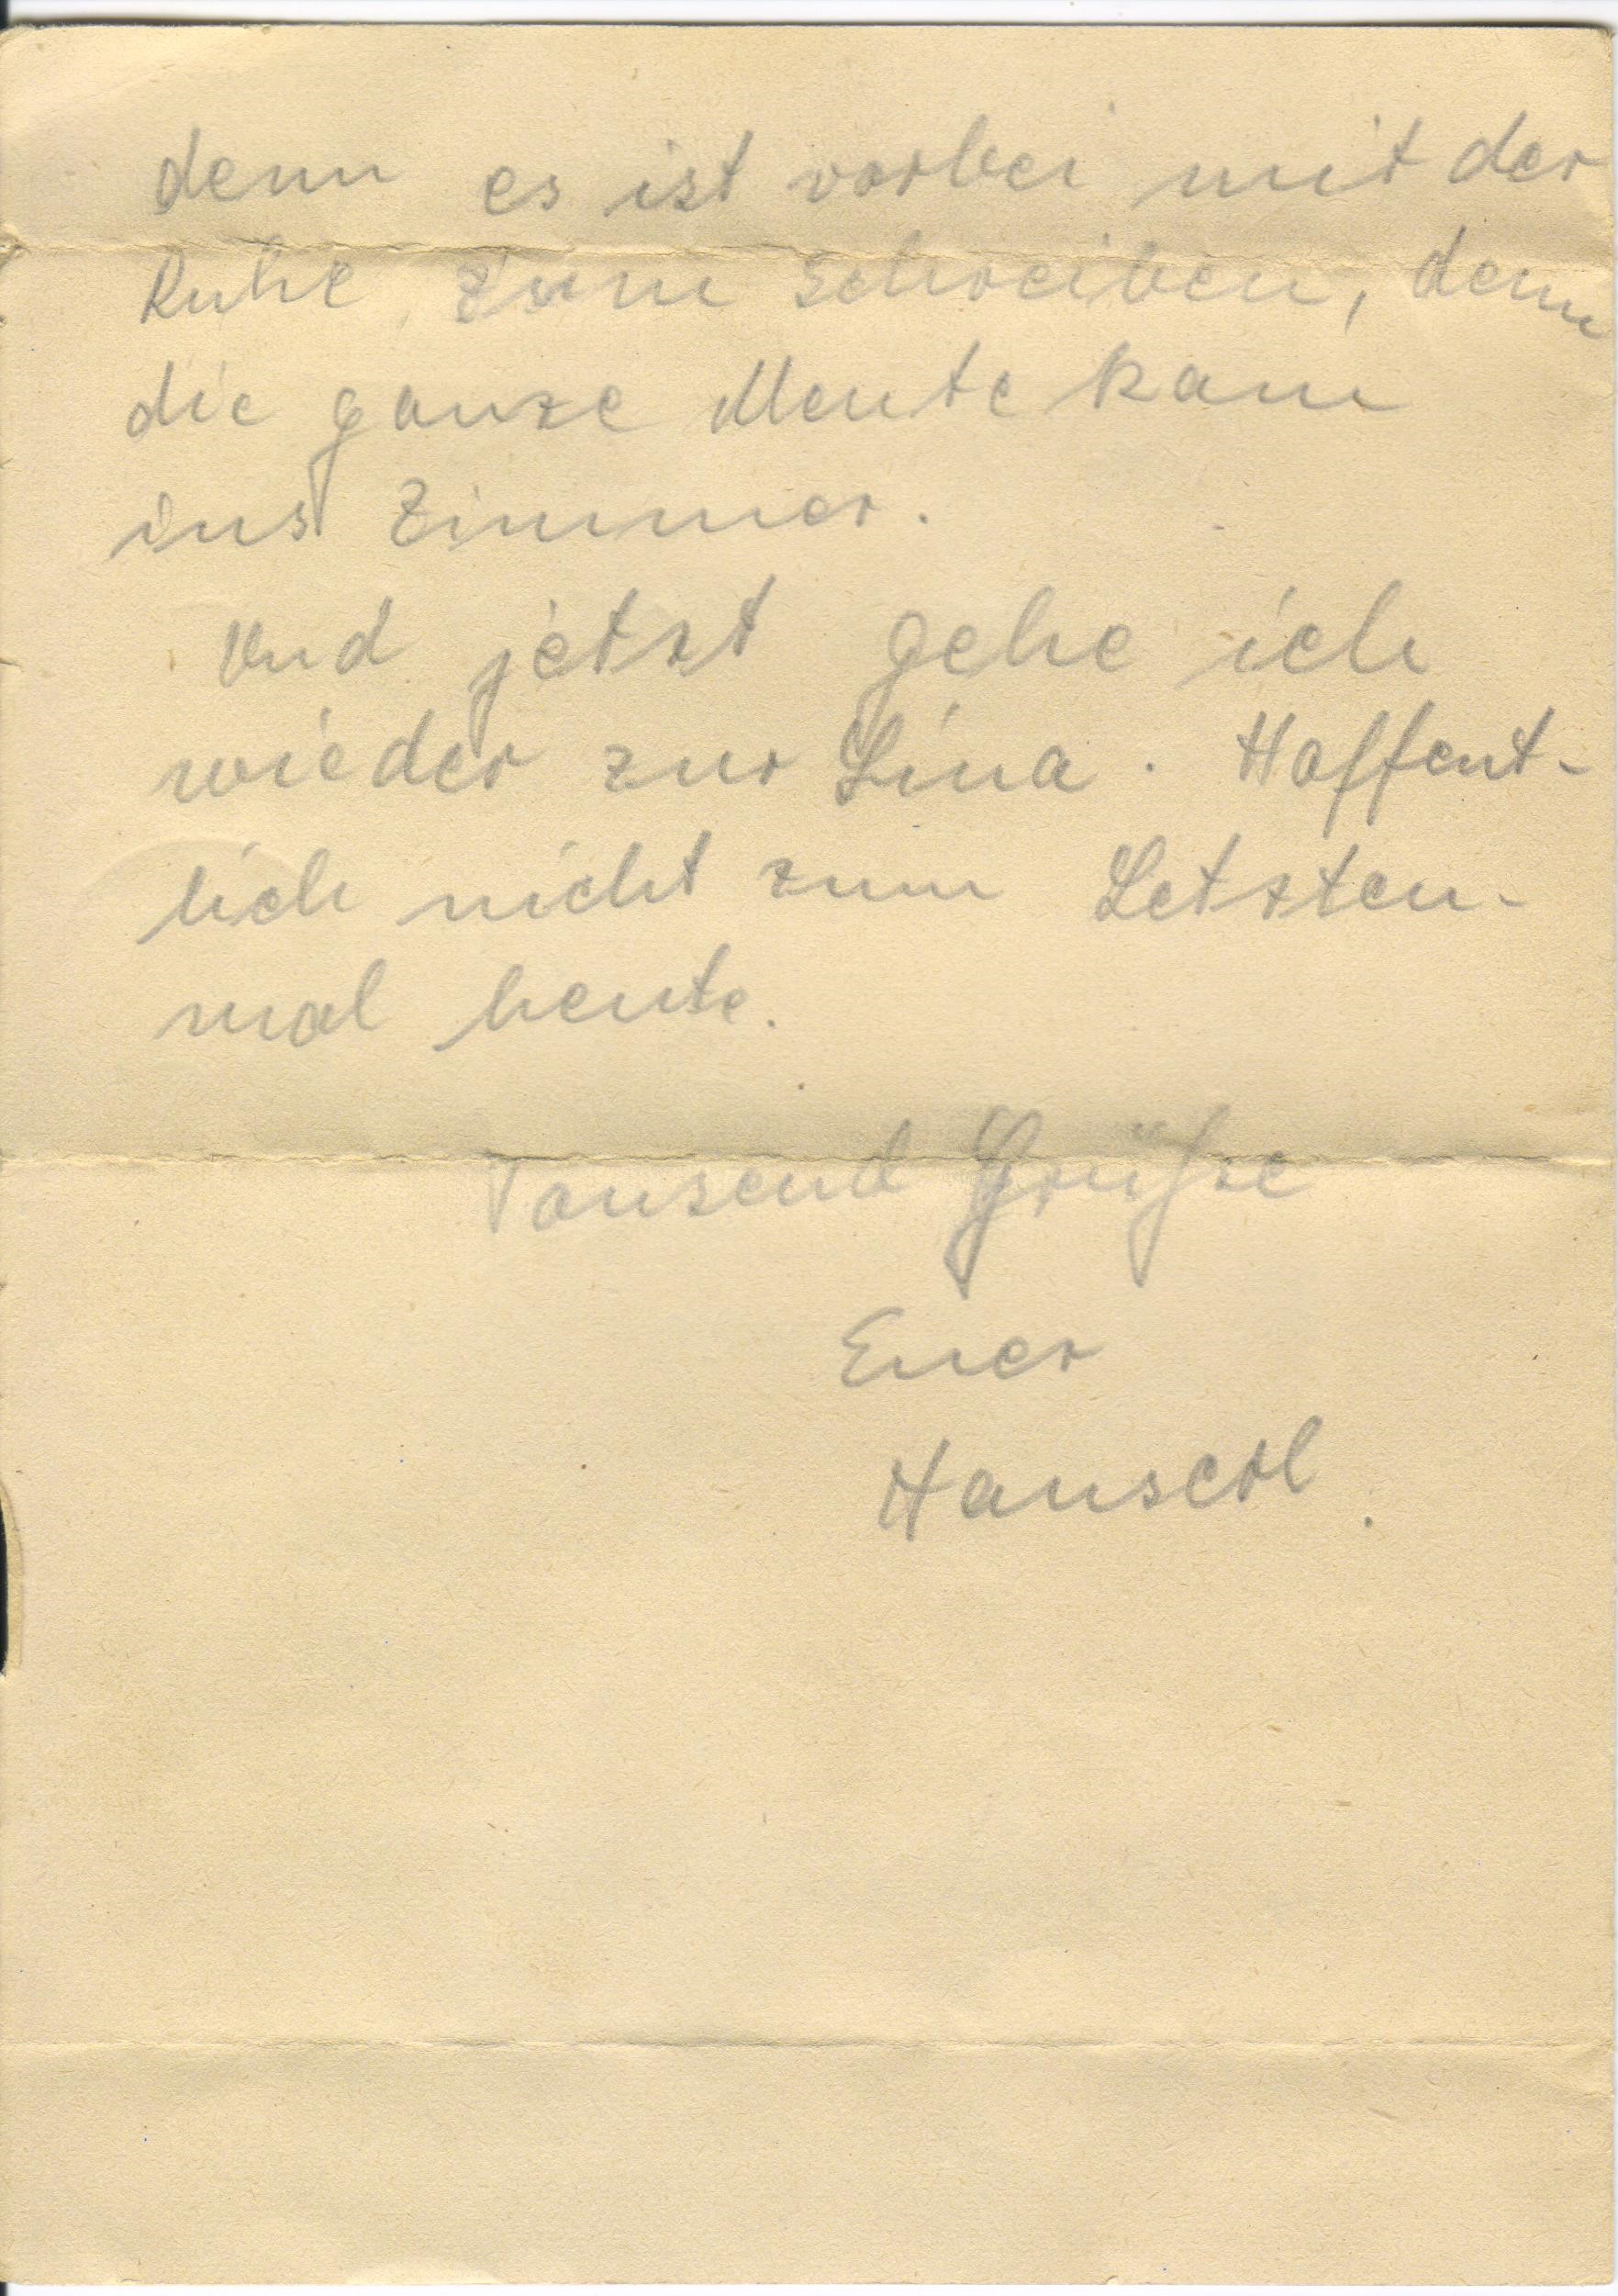 denn es ist vorbei mit der
Ruhe zum schreiben, denn
die ganze Meute kam
ins Zimmer.
Und jetzt gehe ich
wieder zur Lina. Hoffent-
lich nicht zum Letzten-
mal heute.
Tausend Grüße
Euer
Hanserl.